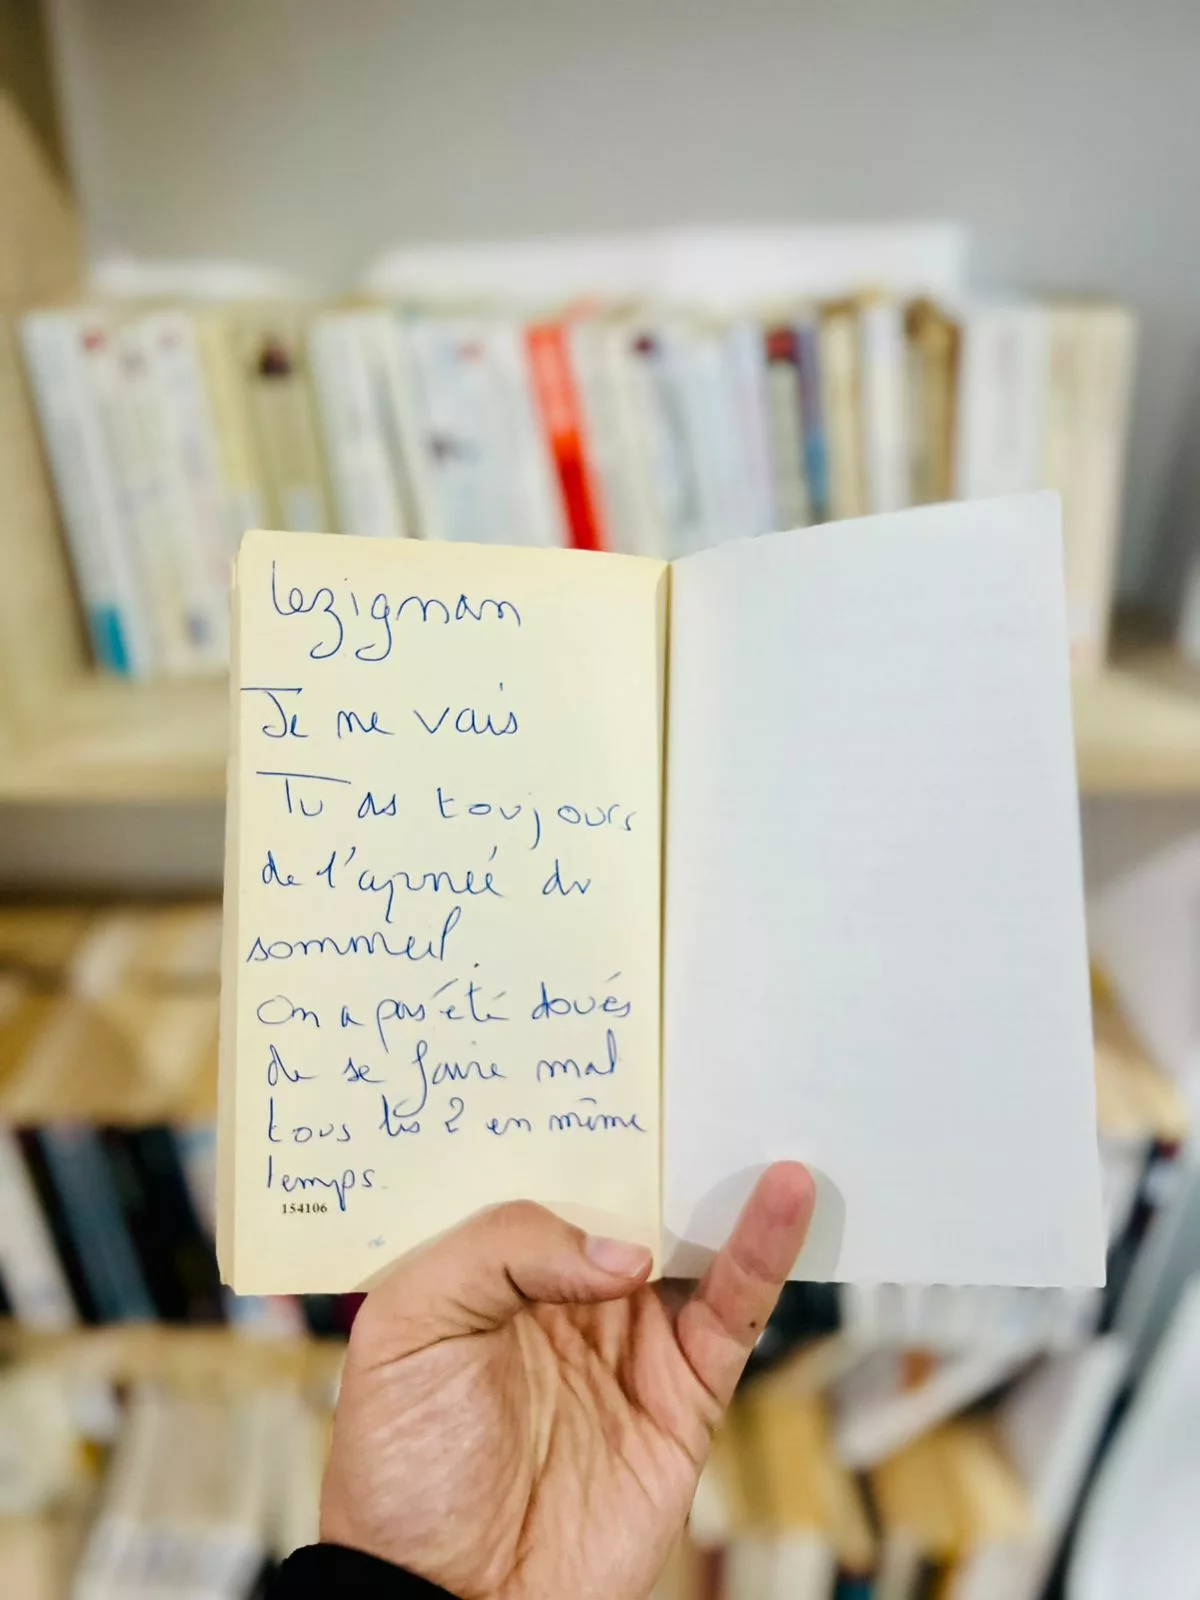 Lezignan
Je me vais
Tu as toujours
de l'apnéé du
sommeil.
On a pas été doués
de se faire mal
tous les 2 en même
temps.
154106